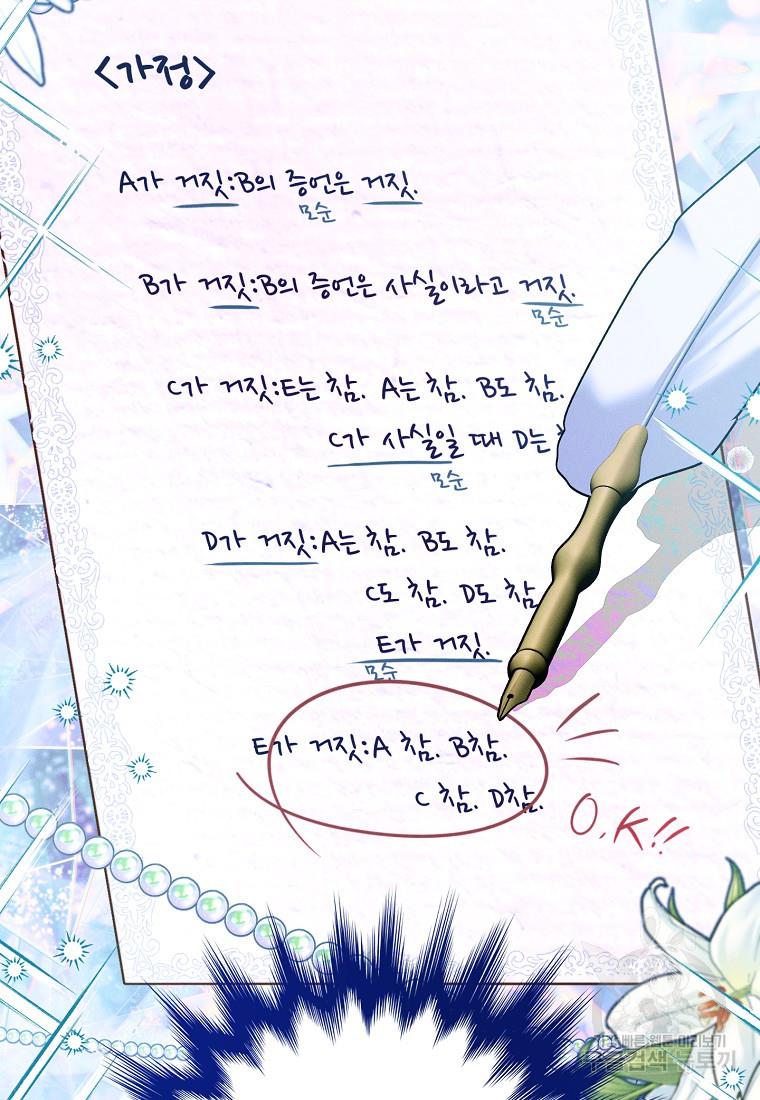 <가정>
A가 거짓:B의 증언은 거짓.
모순
B가 거짓:B의 증언은 사실이라고 거짓.
모순
C가 거짓:E는 참. A는 참. B도 참.
C가 사실일 때 D는
모순
D가 거짓:A는 참. B도 참.
C도 참. D도 참
E가 거짓.
모순
E가 거짓:A 참. B참.
C 참. D참.
O.K!!